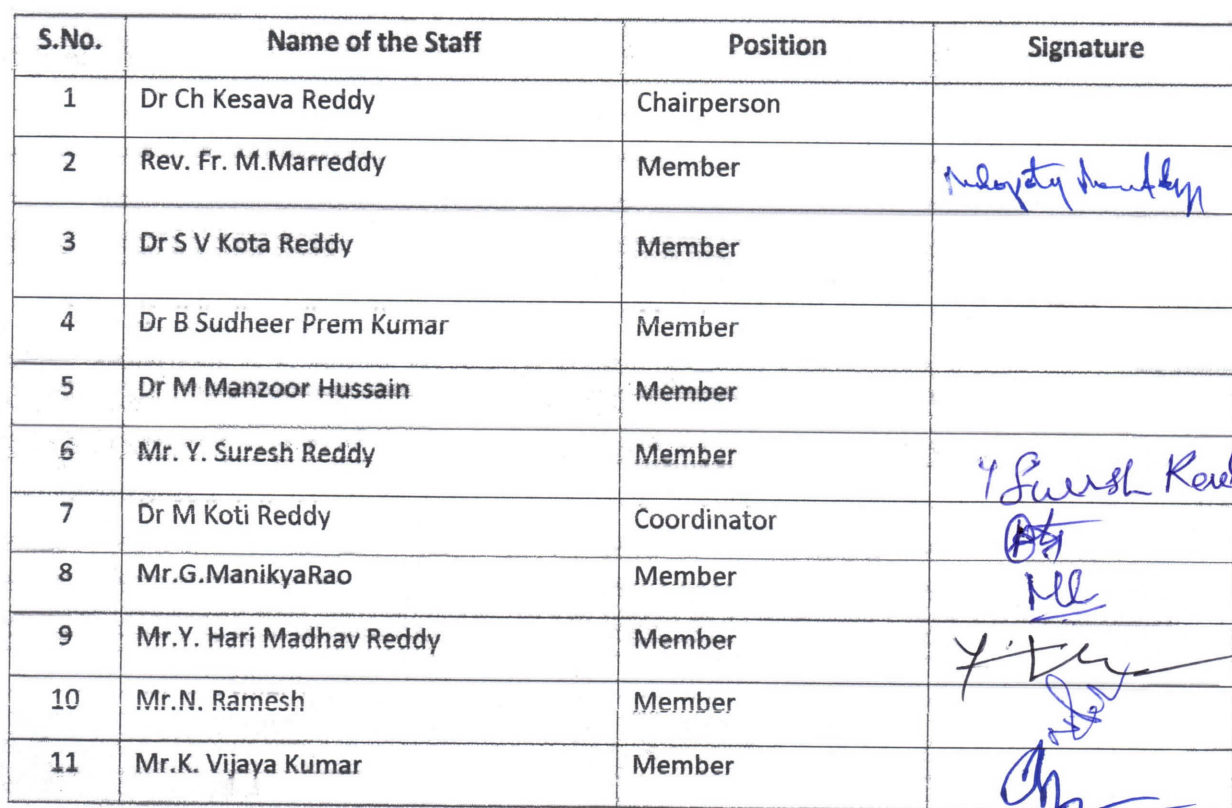 S.No. Name of the Staff Position Signature
1 Dr Ch Kesava Reddy Chairperson
2 Rev. Fr. M.Marreddy Member
3 Dr S V Kota Reddy Member
4 Dr B Sudheer Prem Kumar Member
5 Dr M Manzoor Hussain Member
6 Mr. Y. Suresh Reddy Member Y Suresh
7 Dr M Koti Reddy Coordinator
8 Mr.G.ManikyaRao Member
9 Mr.Y. Hari Madhav Reddy Member
10 Mr.N. Ramesh Member
11 Mr.K. Vijaya Kumar Member